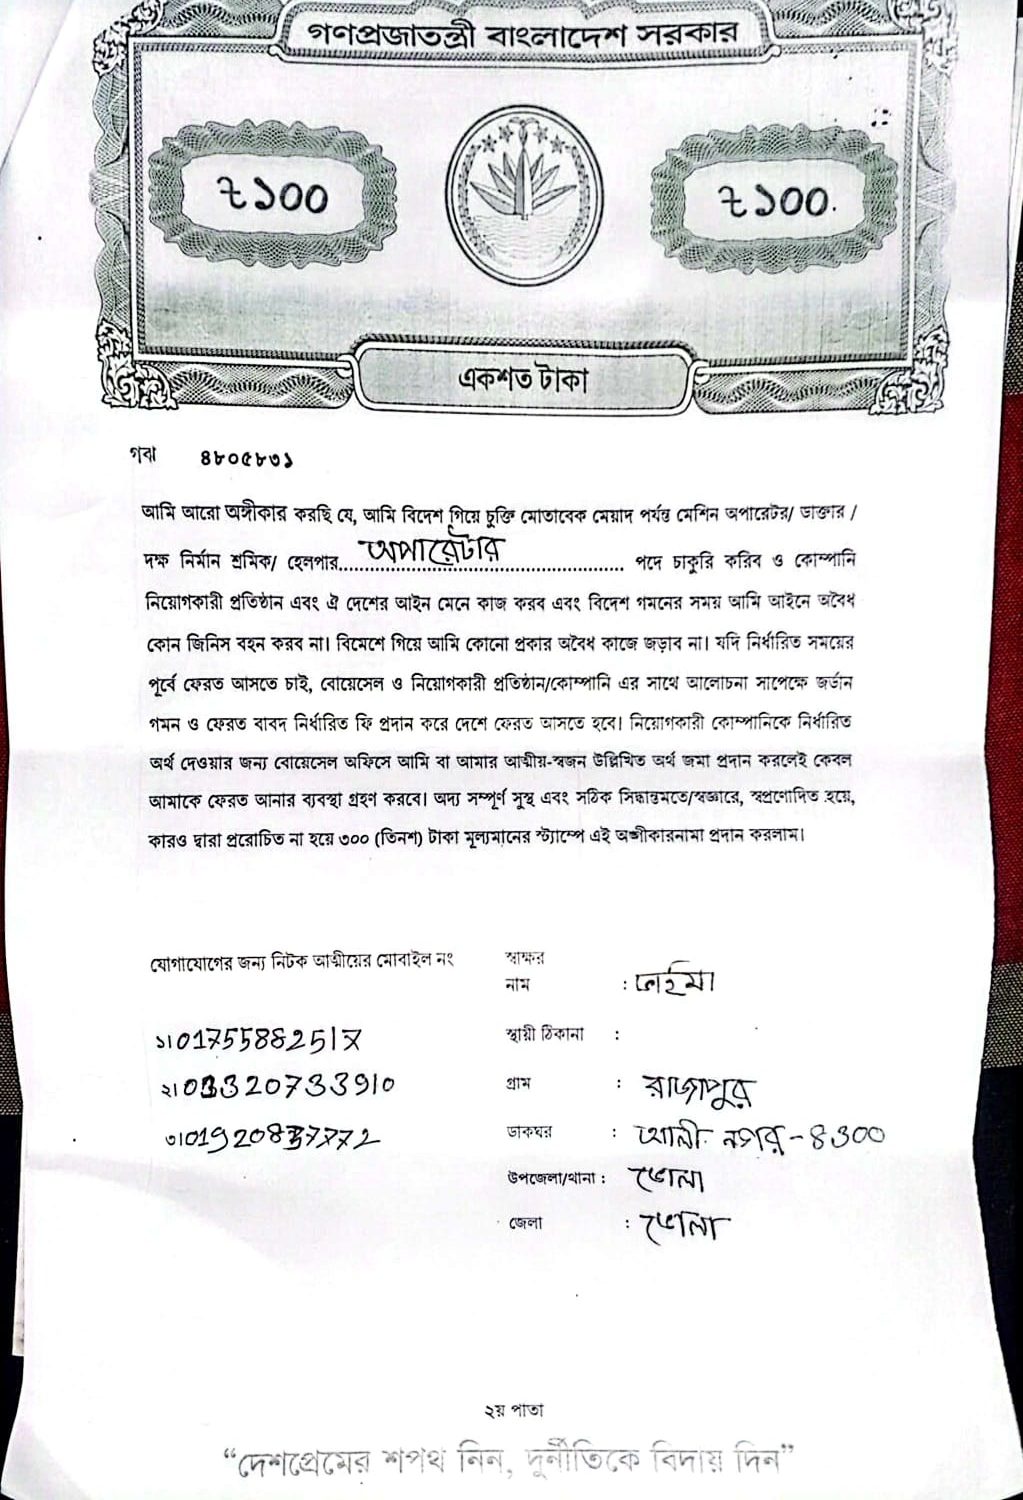 গণপ্রজাতন্ত্রী বাংলাদেশ সরকার
৳১০০
৳১০০
একশত টাকা
গঝ ৪৮০৫৮৩১
আমি আরো অঙ্গীকার করছি যে, আমি বিদেশ গিয়ে চুক্তি মোতাবেক মেয়াদ পর্যন্ত মেশিন অপারেটর/ ডাক্তার /
দক্ষ নির্মান শ্রমিক/ হেলপার.....অপারেটার..... পদে চাকুরি করিব ও কোম্পানি
নিয়োগকারী প্রতিষ্ঠান এবং ঐ দেশের আইন মেনে কাজ করব এবং বিদেশ গমনের সময় আমি আইনে অবৈধ
কোন জিনিস বহন করব না। বিমেশে গিয়ে আমি কোনো প্রকার অবৈধ কাজে জড়াব না। যদি নির্ধারিত সময়ের
পূর্বে ফেরত আসতে চাই, বোয়েসেল ও নিয়োগকারী প্রতিষ্ঠান/কোম্পানি এর সাথে আলোচনা সাপেক্ষে জর্ডান
গমন ও ফেরত বাবদ নির্ধারিত ফি প্রদান করে দেশে ফেরত আসতে হবে। নিয়োগকারী কোম্পানিকে নির্ধারিত
অর্থ দেওয়ার জন্য বোয়েসেল অফিসে আমি বা আমার আত্মীয়-স্বজন উল্লিখিত অর্থ জমা প্রদান করলেই কেবল
আমাকে ফেরত আনার ব্যবস্থা গ্রহণ করবে। অদ্য সম্পূর্ণ সুস্থ এবং সঠিক সিদ্ধান্তমতে/স্বজ্ঞারে, স্বপ্রণোদিত হয়ে,
কারও দ্বারা প্ররোচিত না হয়ে ৩০০ (তিনশ) টাকা মূল্যমানের স্ট্যাম্পে এই অঙ্গীকারনামা প্রদান করলাম।
যোগাযোগের জন্য নিটক আত্মীয়ের মোবাইল নং
স্বাক্ষর
নাম :
১।01755882517
স্থায়ী ঠিকানা :
২।
গ্রাম : রাজাপুর
৩।
ডাকঘর : আলী নগর - 8300
উপজেলা/থানা : ভোলা
জেলা : ভোলা
২য় পাতা
“দেশপ্রেমের শপথ নিন, দুর্নীতিকে বিদায় দিন”